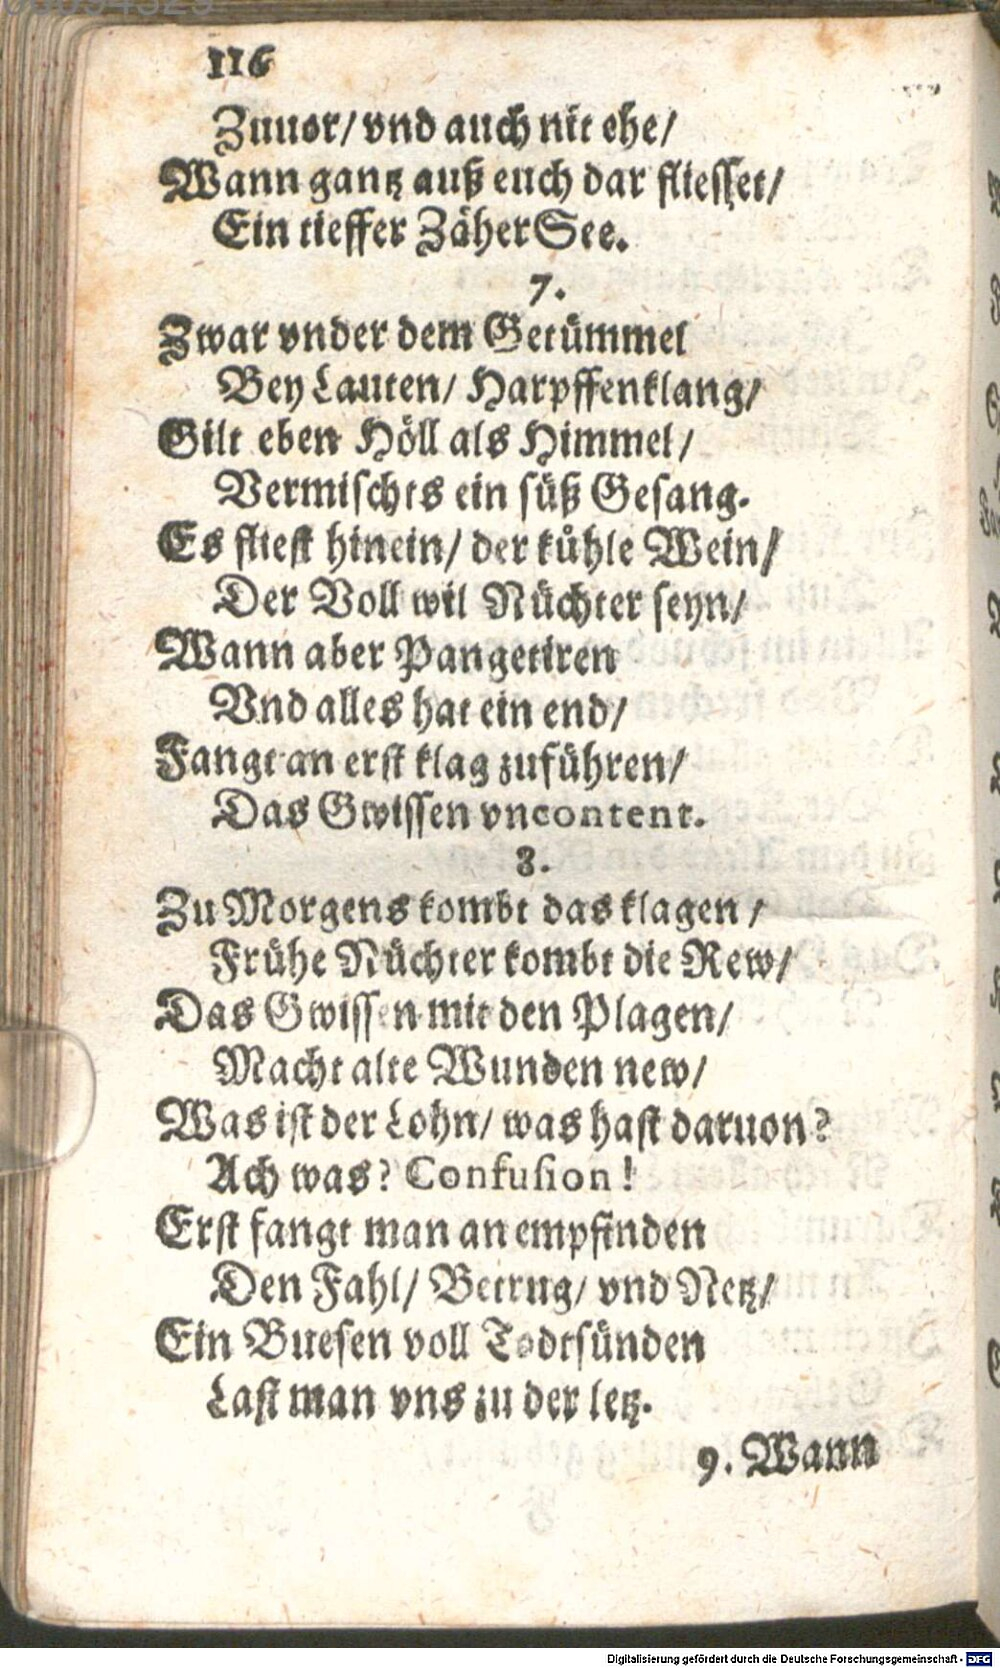 116
Zuuor/ vnd auch nit ehe/
Wann gantz auß euch dar fliesset/
Ein tieffer Zäher See.
7.
Zwar vnder dem Getümmel
Bey Lauten/ Harpffenklang/
Gilt eben Höll als Himmel/
Vermischts ein süß Gesang.
Es fliest hinein/ der kůhle Wein/
Der Voll wil Nüchter seyn/
Wann aber Pangetiren
Vnd alles hat ein end/
Fangt an erst klag zuführen/
Das Gwissen vncontent.
8.
Zu Morgens kombt das klagen/
Frühe Nüchter kombt die Rew/
Das Gwissen mit den Plagen/
Macht alte Wunden new/
Was ist der Lohn/ was hast daruon?
Ach was? Confusion!
Erst fangt man an empfinden
Den Fahl/ Betrug/ vnd Netz/
Ein Buesen voll Todtsünden
Last man vns zu der letz.
9. Wann
Digitalisierung gefördert durch die Deutsche Forschungsgemeinschaft - DFG